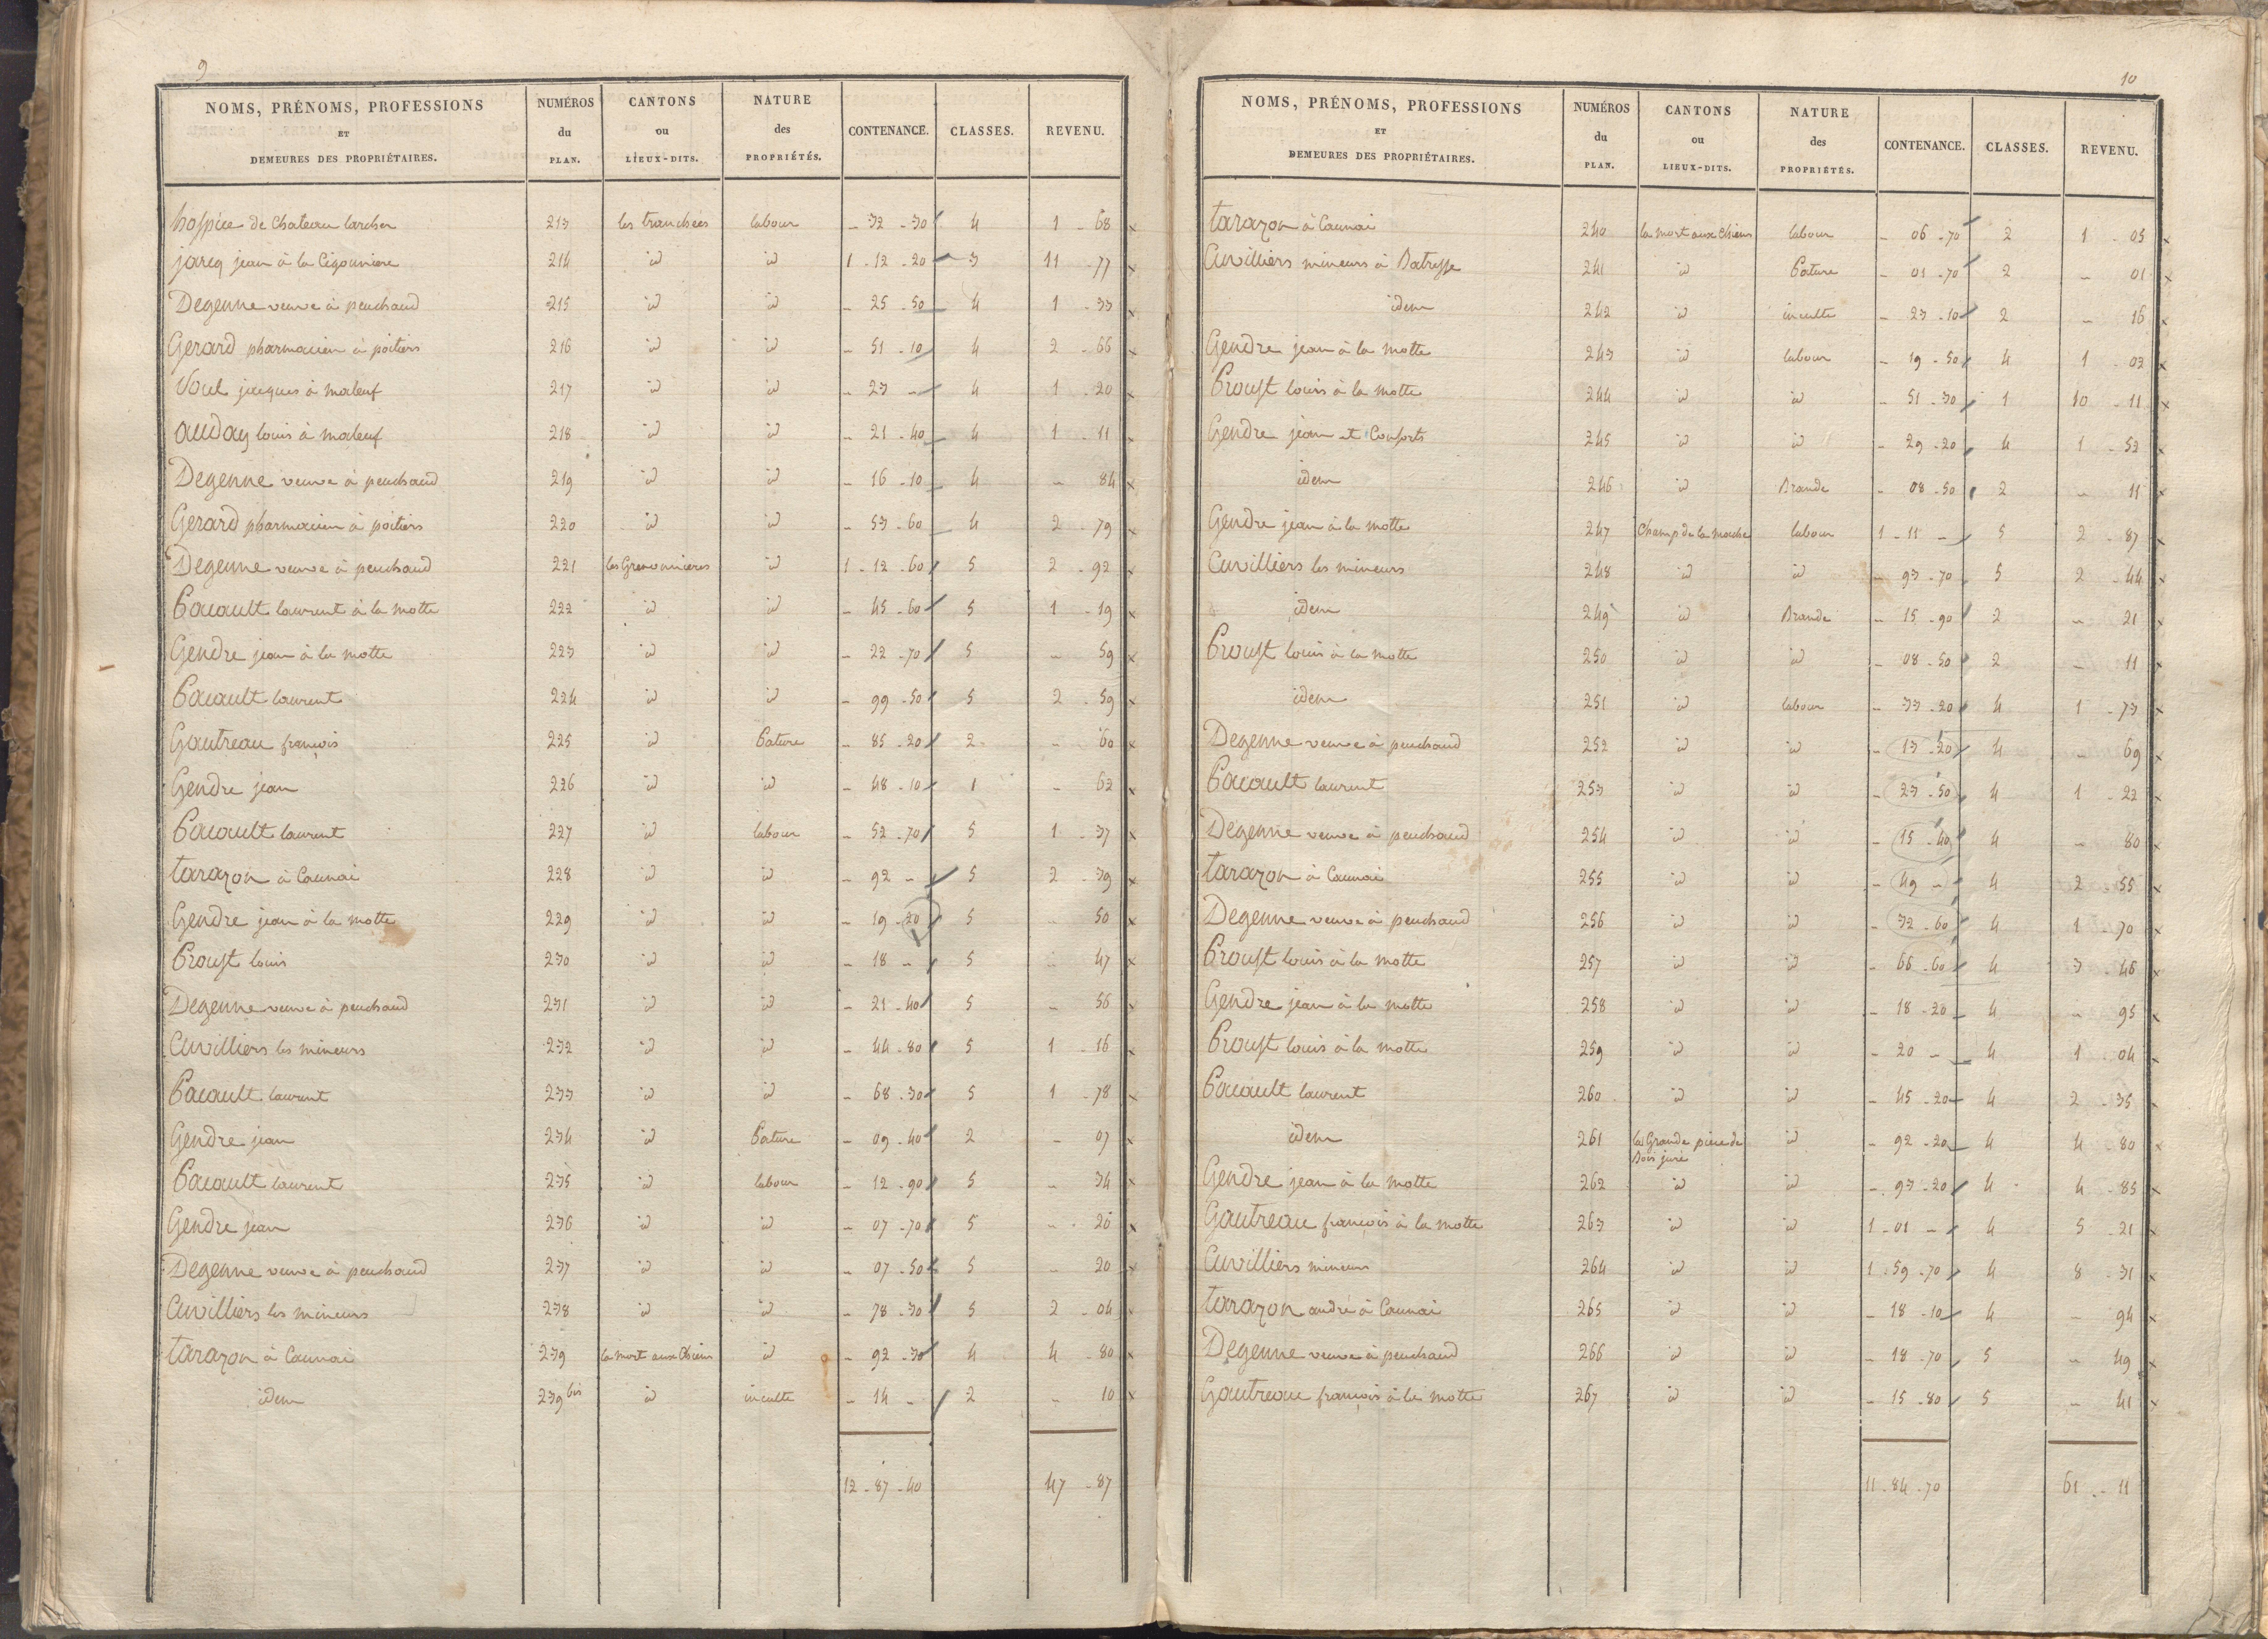 9
NOMS, PRÉNOMS, PROFESSIONS ET DEMEURES DES PROPRIÉTAIRES. NUMÉROS du PLAN. CANTONS ou LIEUX-DITS. NATURE des PROPRIÉTÉS. CONTENANCE. CLASSES. REVENU.
hospice de Chateau larcher 213 les tranchées labour - 32 - 30 4 1 - 68
jareq jean à la Cigouniere 214 id id 1 - 12 - 20 3 11 - 77
Degenne veuve à peuchaud 215 id id - 25 - 50 4 1 - 33
Gerard pharmacien à poitiers 216 id id - 51 - 10 4 2 - 66
jacques à maleuf 217 id id - 23 - 4 1 - 20
auday louis à maleuf 218 id id - 21 - 40 4 1 - 11
Degenne veuve à peuchaud 219 id id - 16 - 10 4 - 84
Gerard pharmacien à poitiers 220 id id - 53 - 60 4 2 - 79
Degenne veuve à peuchaud 221 les id 1 - 12 - 60 5 2 - 92
Pacault laurent à la motte 222 id id - 45 - 60 5 1 - 19
Gendre jean à la motte 223 id id - 22 - 70 5 - 59
Pacault laurent 224 id id - 99 - 50 5 2 - 59
Gautreau françois 225 id Pature - 85 - 20 2 - 60
Gendre jean 226 id id - 48 - 10 1 - 62
Pacault laurent 227 id labour - 52 - 70 5 1 - 37
tarazon à Caunai 228 id id - 92 - 5 2 - 39
Gendre jean à la motte 229 id id - 19 - 20 5 - 50
Proust louis 230 id id - 18 - 5 - 47
Degenne veuve à peuchaud 231 id id - 21 - 40 5 - 56
Cuvilliers les mineurs 232 id id - 44 - 80 5 1 - 16
Pacault laurent 233 id id - 68 - 30 5 1 - 78
Gendre jean 234 id Pature - 09 - 40 2 - 07
Pacault laurent 235 id labour - 12 - 90 5 - 34
Gendre jean 236 id id - 07 - 70 5 - 20
Degenne veuve à peuchaud 237 id id - 07 - 50 5 - 20
Cuvilliers les mineurs 238 id id - 78 - 30 5 2 - 04
tarazon à Caunai 239 la mort aux Chiens id - 92 - 30 4 4 - 80
idem 239 bis id inculte - 14 - 2 - 10
12 - 87 - 40 47 - 87
10
NOMS, PRÉNOMS, PROFESSIONS ET DEMEURES DES PROPRIÉTAIRES. NUMÉROS du PLAN. CANTONS ou LIEUX-DITS. NATURE des PROPRIÉTÉS. CONTENANCE. CLASSES. REVENU.
tarazon à Caunai 240 la mort aux Chiens labour - 06 - 70 2 1 - 05
Cuvilliers mineurs à Batresse 241 id Pature - 01 - 70 2 - 01
idem 242 id inculte - 23 - 10 2 - 16
Gendre jean à la motte 243 id labour - 19 - 50 4 1 - 02
Proust louis à la motte 244 id id - 51 - 30 1 10 - 11
Gendre jean et Consorts 245 id id - 29 - 20 4 1 - 52
idem 246 id Brande - 08 - 50 2 - 11
Gendre jean à la motte 247 Champ de la labour 1 - 11 - 5 2 - 87
Cuvilliers les mineurs 248 id id - 93 - 70 5 2 - 44
idem 249 id Brande - 15 - 90 2 - 21
Proust louis à la motte 250 id id - 08 - 50 2 - 11
idem 251 id labour - 33 - 20 4 1 - 73
Degenne veuve à peuchaud 252 id id - 13 - 20 4 - 69
Pacault laurent 253 id id - 23 - 50 4 1 - 22
Degenne veuve à peuchaud 254 id id - 15 - 40 4 - 80
tarazon à Caunai 255 id id - 49 - 4 2 - 55
Degenne veuve à peuchaud 256 id id - 32 - 60 4 1 - 70
Proust louis à la motte 257 id id - 66 - 60 4 3 - 46
Gendre jean à la motte 258 id id - 18 - 20 4 - 95
Proust louis à la motte 259 id id - 20 - 4 1 - 04
Pacault laurent 260 id id - 45 - 20 4 2 - 35
idem 261 la Grande piece de Bois juré id - 92 - 20 4 4 - 80
Gendre jean à la motte 262 id id - 93 - 20 4 4 - 85
Gautreau françois à la motte 263 id id 1 - 01 - 4 5 - 21
Cuvilliers mineurs 264 id id 1 - 59 - 70 4 8 - 31
tarazon andré à Caunai 265 id id - 18 - 10 4 - 94
Degenne veuve à peuchaud 266 id id - 18 - 70 5 - 49
Gautreau françois à la motte 267 id id - 15 - 80 5 - 41
11 - 84 - 70 61 - 11